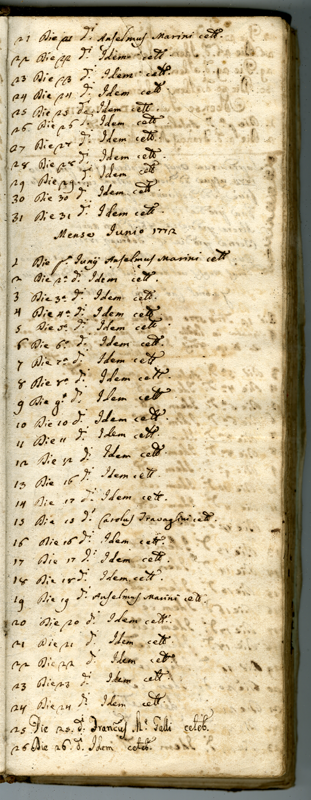 21 Die 21 d.i Anselmus Marini cett.
22 Die 22 d.i Idem cett.
23 Die 23 d.i Idem cett.
24 Die 24 d.i Idem cett.
25 Die 25 d.i Idem cett.
26 Die 26 d.i Idem cett.
27 Die 27 d.i Idem cett.
28 Die 28 d.i Idem cett.
29 Die 29 d.i Idem cett.
30 Die 30 d.i Idem cett.
31 Die 31 d.i Idem cett.
Mense Junio 1772
1 Die Junij Anselmus Marini cett.
2 Die 2.a d.i Idem cett.
3 Die 3.a d.i Idem cett.
4 Die 4.a d.i Idem cett.
5 Die 5.a d.i Idem cett.
6 Die 6.a d.i Idem cett.
7 Die 7.a d.i Idem cett.
8 Die 8.a d.i Idem cett.
9 Die 9.a d.i Idem cett.
10 Die 10 d.i Idem cett.
11 Die 11 d.i Idem cett.
12 Die 12 d.i Idem cett.
13 Die 16 d.i Idem cett.
14 Die 17 d.i Idem cett.
15 Die 15 d.i Carolus Travaglini cett.
16 Die 16 d.i Idem cett.
17 Die 17 d.i Idem cett.
18 Die 18 d.i Idem cett.
19 Die 19 d.i Anselmus Marini cett.
20 Die 20 d.i Idem cett.
21 Die 21 d.i Idem cett.
22 Die 22 d.i Idem cett.
23 Die 23 d.i Idem cett.
24 Die 24 d.i Idem cett.
25 Die 25. d.i Francus M.a Galli celeb.
26 Die 26. d.i Idem celeb.